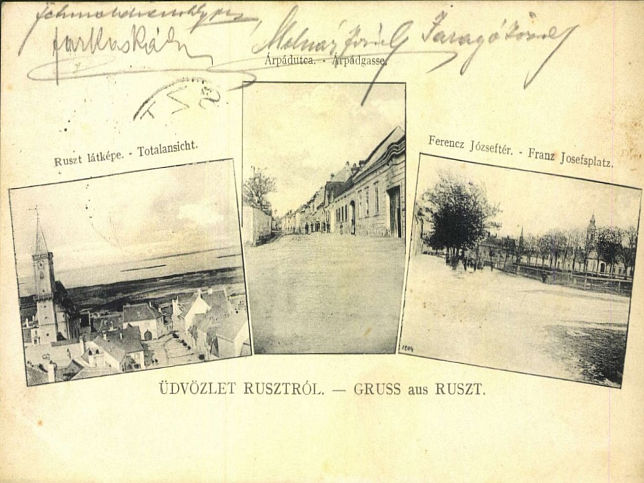 Farkas Kádár
Molnár József Faragó József
Árpádutca. - Árpádgasse.
Ruszt látképe. - Totalansicht.
Ferencz Józseftér. - Franz Josefsplatz.
1904
ÜDVÖZLET RUSZTRÓL. — GRUSS aus RUSZT.